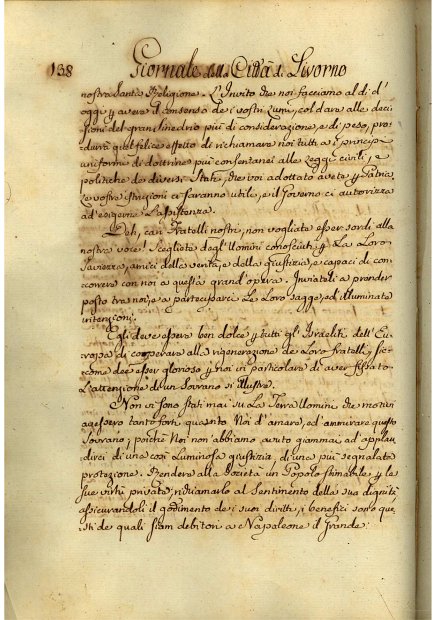 138 Giornale della Città di Livorno
nostra Santa Religione. L'Invito che noi facciamo al dì d'
oggi p avere il consenso de i vostri lumi, col dare alle deci
sioni del gran sinedrio più di considerazione, e di peso, pro
durrà quel felice effetto di richiamare noi tutti a i principj
uniformi di dottrine più consentanei alle Leggi civili, e
politiche de diversi Stati, che voi adottato avete p Patria.
Le vostre istruzioni ci saranno utili, e il Governo ci autorizza
ad esigerne L'assistenza.
Deh, cari Fratelli nostri, non vogliate esser sordi alla
nostra voce! Scegliete degl'Uomini conosciuti p La Loro
Saviezza, amici della verità, e della giustizia, e capaci di con
correre con noi a questa grand'opera. Inviateli a prender
posto tra noi, e a parteciparci Le Loro sagge, ed illuminate
intenzioni.
Egli deve essere ben dolce p tutti gl'Israeliti dell'Eu
ropa di cooperare alla rigenerazione de Loro fratelli, sic
come dee esser glorioso p noi in particolare di aver fissato
L'attenzione di un Sovrano sì illustre.
Non vi sono stati mai su La Terra Uomini che motivi
avessero tanto forti quanto Noi d'amare, ed ammirare questo
Sovrano; poichè Noi non abbiamo avuto giammai ad applau
dirci di una così Luminosa giustizia, di una più segnalata
protezione. Rendere alla Società un Popolo stimabile p le
sue virtù private; richiamarlo al Sentimento della sua dignità
assicurandoli il godimento de i suoi diritti, i benefici sono que
sti de quali siam debitori a Napoleone il Grande.